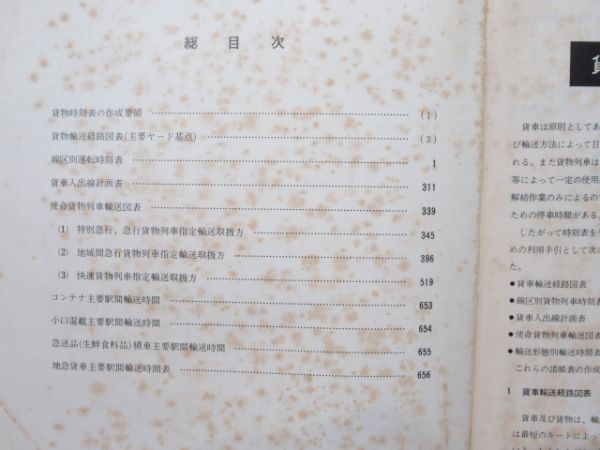 総目次
貨物時刻表の作成要領 (1)
貨物輸送経路図表(主要ヤード基点) (3)
線区別運転時刻表 1
貨車入出線計画表 311
使命貨物列車輸送図表 339
(1) 特別急行、急行貨物列車指定輸送取扱方 345
(2) 地域間急行貨物列車指定輸送取扱方 396
(3) 快速貨物列車指定輸送取扱方 519
コンテナ主要駅間輸送時間 653
小口混載主要駅間輸送時間 654
急送品(生鮮食料品)積車主要駅間輸送時間 655
地急貨車主要駅間輸送時間表 656
貨車は原則としてあ
び輸送方法によって目
れる。また貨物列車は
等によって一定の使用
解結作業のみによるので
ための停車時間がある。
したがって時刻表を
めの利用手引として次の
た。
●貨車輸送経路図表
●線区別貨物列車時刻表
●貨車入出線計画表
●使命貨物列車輸送図表
●輸送形態別輸送時間表
これらの諸帳表の作成
1 貨車輸送経路図表
貨車及び貨物は、輸
は最短のルートによっ